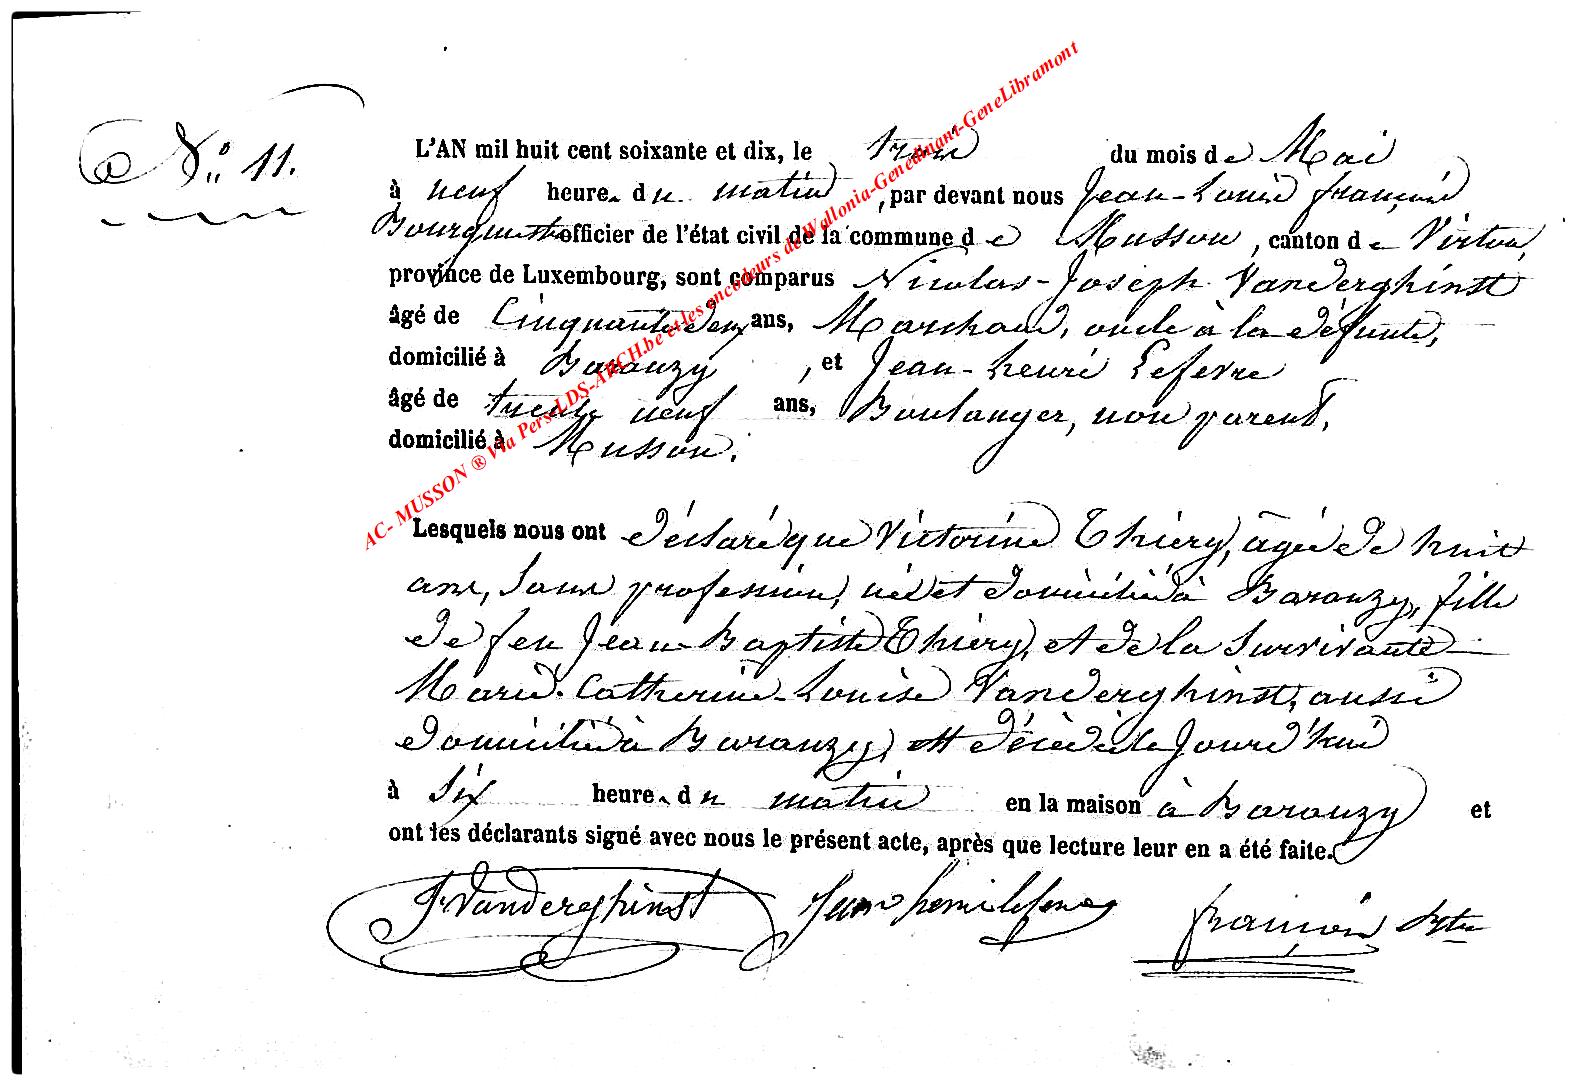 N° 11.
L'AN mil huit cent soixante et dix, le trois du mois de Mai
à neuf heures du matin, par devant nous Jean-Louis françois
Bourgmestre officier de l'état civil de la commune de Musson, canton de Virton,
province de Luxembourg, sont comparus Nicolas-Joseph Vanderghinst
âgé de Cinquante deux ans, Marchand, oncle à la défunte,
domicilié à Baranzy, et Jean-henri Lefevre
âgé de trente neuf ans, Boulanger, non parent,
domicilié à Musson.
Lesquels nous ont déclaré que Victorine Thiery, agée de huit
ans, Sans profession, née et domiciliée à Baranzy, fille
de feu Jean Baptiste Thiery, et de la Survivante
Marie-Catherine-Louise Vanderghinst, aussi
domiciliée à Baranzy, est décédée le Jourd'hui
à Six heures du matin en la maison à Baranzy et
ont les déclarants signé avec nous le présent acte, après que lecture leur en a été faite.
J. Vanderghinst Jean henri lefevre françois
AC- MUSSON ® Via Pers-LDS-ARCH.be et les encodeurs de Wallonia-Genedinant-GeneLibramont